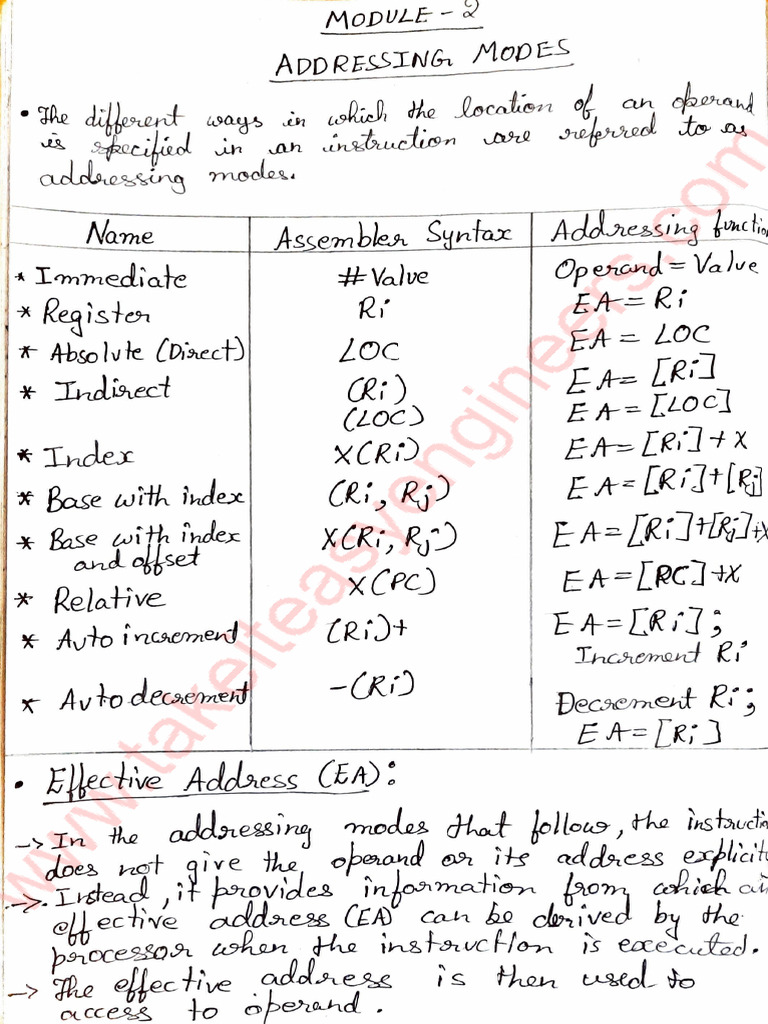 MODULE - 2
ADDRESSING MODES
• The different ways in which the location of an operand
is specified in an instruction are referred to as
addressing modes.
Name Assembler Syntax Addressing function
* Immediate #Value Operand = Value
* Register Ri EA = Ri
* Absolute (Direct) LOC EA = LOC
* Indirect (Ri) EA = [Ri]
(LOC) EA = [LOC]
* Index X(Ri) EA = [Ri] + X
* Base with index (Ri, Rj) EA = [Ri]+[Rj]
* Base with index X(Ri, Rj) EA = [Ri]+[Rj]+X
and offset
* Relative X(PC) EA = [PC]+X
* Auto increment (Ri)+ EA = [Ri];
Increment Ri
* Auto decrement -(Ri) Decrement Ri;
EA = [Ri]
• Effective Address (EA):
-> In the addressing modes that follow, the instructio
does not give the operand or its address explicit
->. Instead, it provides information from which an
effective address (EA) can be derived by the
processor when the instruction is executed.
-> The effective address is then used to
access to operand.
www.takeiteasyengineers.com